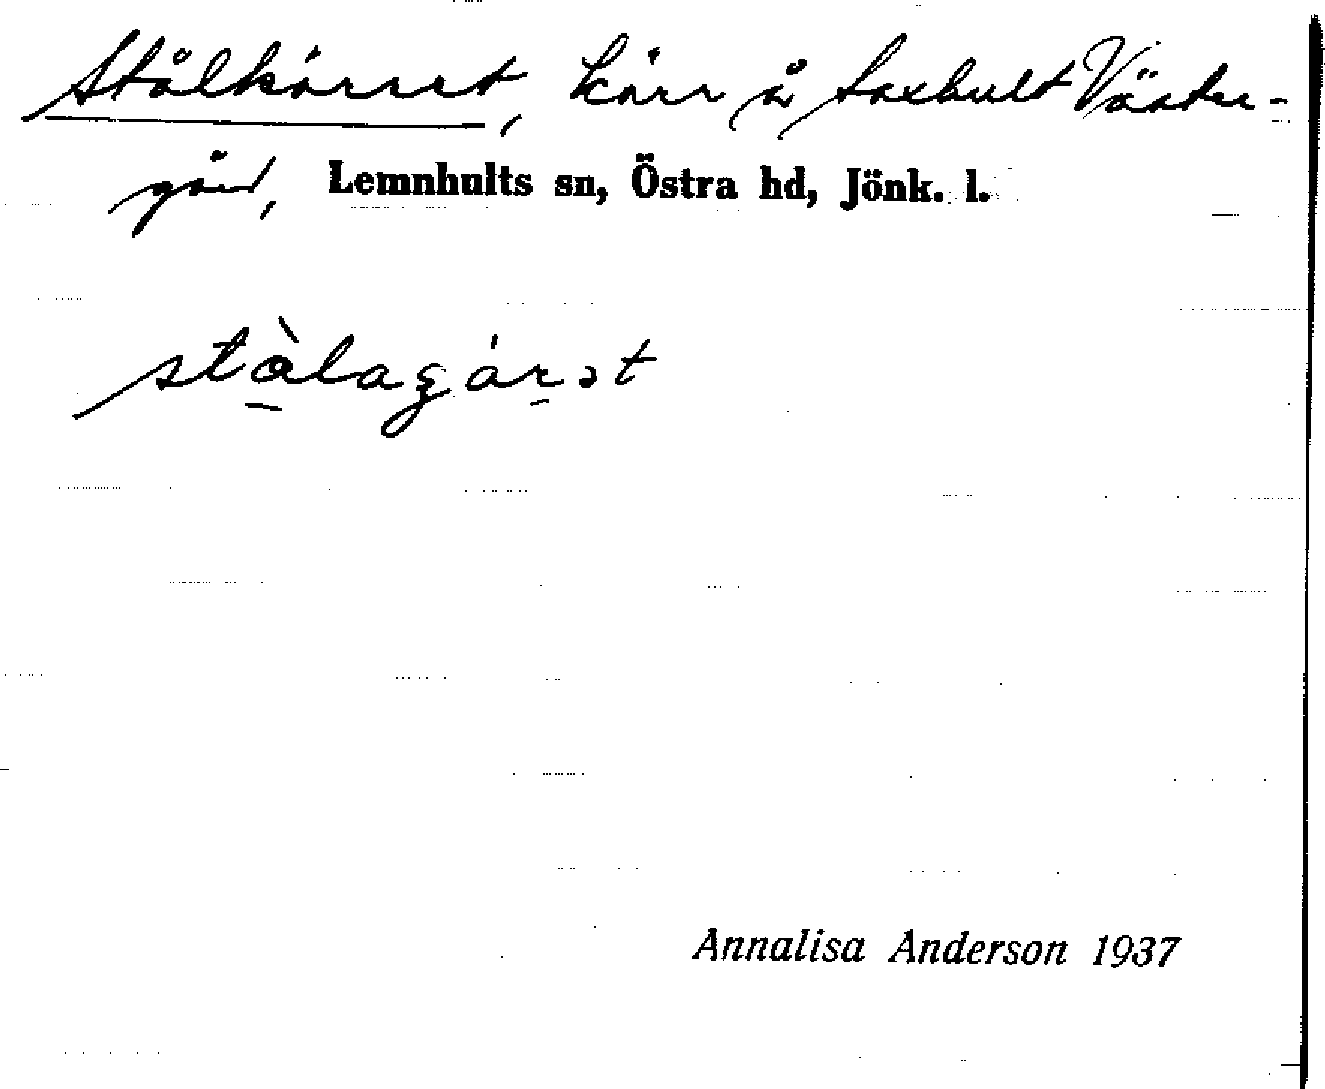 Stålkärret, kärr å Saxhult Väster-
gård, Lemnhults sn, Östra hd, Jönk. l.
Annalisa Anderson 1937